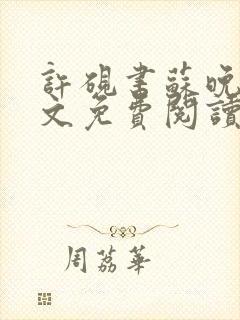 許硯書蘇晚
文免費閱讀
周荔華